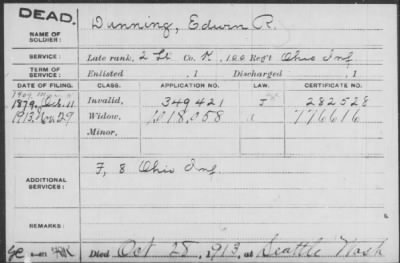 DEAD.
NAME OF SOLDIER: Dunning, Edwin R.
SERVICE: Late rank, 2 Lt Co. K, 100 Reg't Ohio Inf
TERM OF SERVICE: Enlisted , 1 Discharged , 1
DATE OF FILING. CLASS. APPLICATION NO. LAW. CERTIFICATE NO.
1879, Oct. 11 Invalid, 349421 282528
1913, 29 Widow, 1018,058 776616
Minor,
ADDITIONAL SERVICES: F, 8 Ohio Inf.
REMARKS:
Died Oct 25, 1913, at Seattle Wash